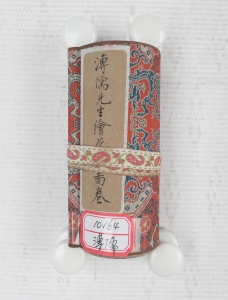 溥儒先生繪
圖卷
10164
溥儒